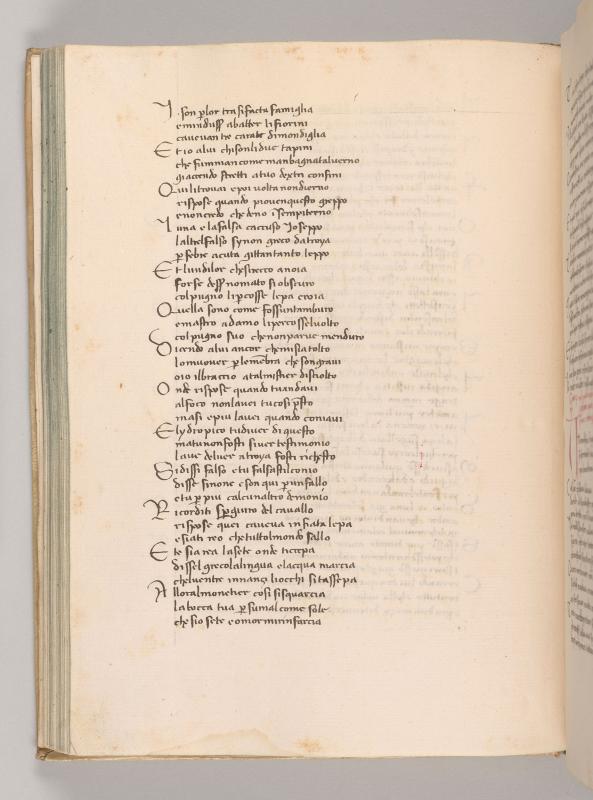 I son p lor tra sifacta famiglia
eminduss abatter lifiorini
caveuan tre carate dimondiglia
Et io alui chi sonlidue tapini
che fumman come man bagnatalverno
giacendo stretti atuo dextri confini
Qui li trovai epoi volta nondierno
rispose quando piovenquesto greppo
enoncredo chedeno isempiterno
Luna e lafalsa caccuso Joseppo
laltrelfalso synon greco datroya
p febre acuta gittantanto leppo
Et lundilor chesirecco anoia
forse dess nomato si obscuro
colpugno lipcosse lepa croia
Quella sono come fossuntamburo
emastro adamo lipercosselvolto
Scol pugno suo chenonparve menduro
Dicendo alui ancor chemisiatolto
lomuover p lemebra chesongravi
oio ilbraccio atalmistier disciolto
Onde rispose quando tuandavi
alfoco nonlavei tucosi psto
masi epiu lavei quando coniavi
Elydropico tudiver di questo
matunonfosti siver testimonio
lave delver atroya fosti richesto
Sidissi falso etu falsastilconio
disse sinone eson qui p unfallo
etu p piu calcunaltro demonio
Ricorditi spguiro del cavallo
rispose quei caveva infiata lepa
esiati reo chetuttolmondo sallo
Ete sia rea lasete onde ticrepa
dissel grecolalingua elacqua marcia
chelventre innanzi liocchi sitassepa
Alloralmonetier cosi sisquarcia
labocca tua p sumal come sole
che sio sete eomormirinfarcia